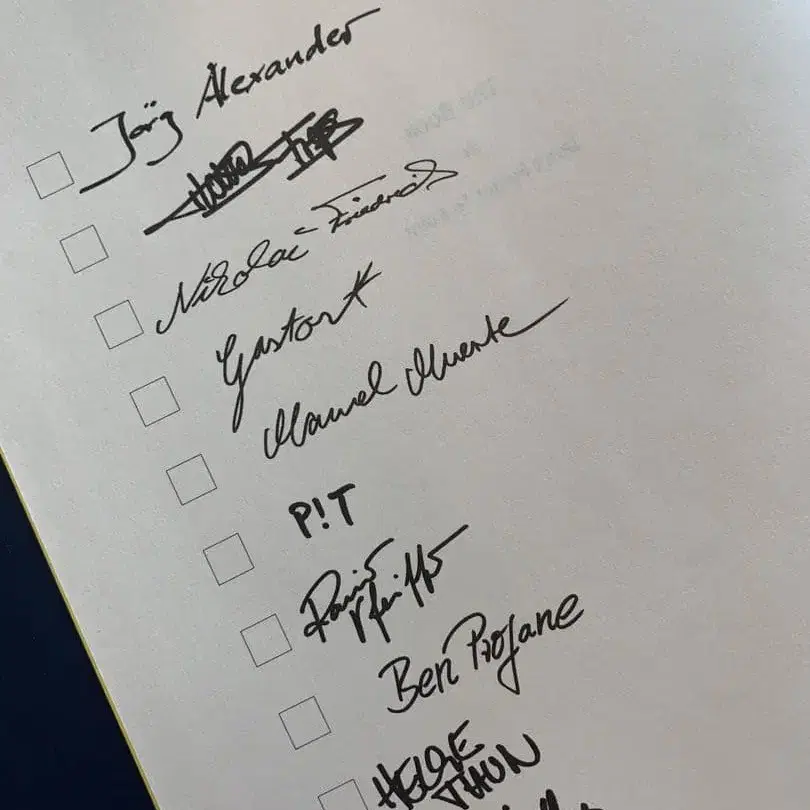 Jörg Alexander
Nikolai Friedrich
Gaston
Manuel Muerte
P!T
Pfeiffer
Ben Profane
HELGE
THUN